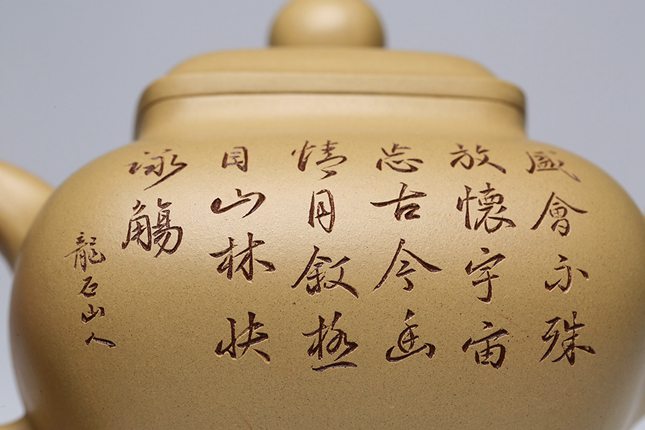 盛會不殊
放懷宇宙
忘古今幽
情月叙極
目山林快
詠觴
龍石山人